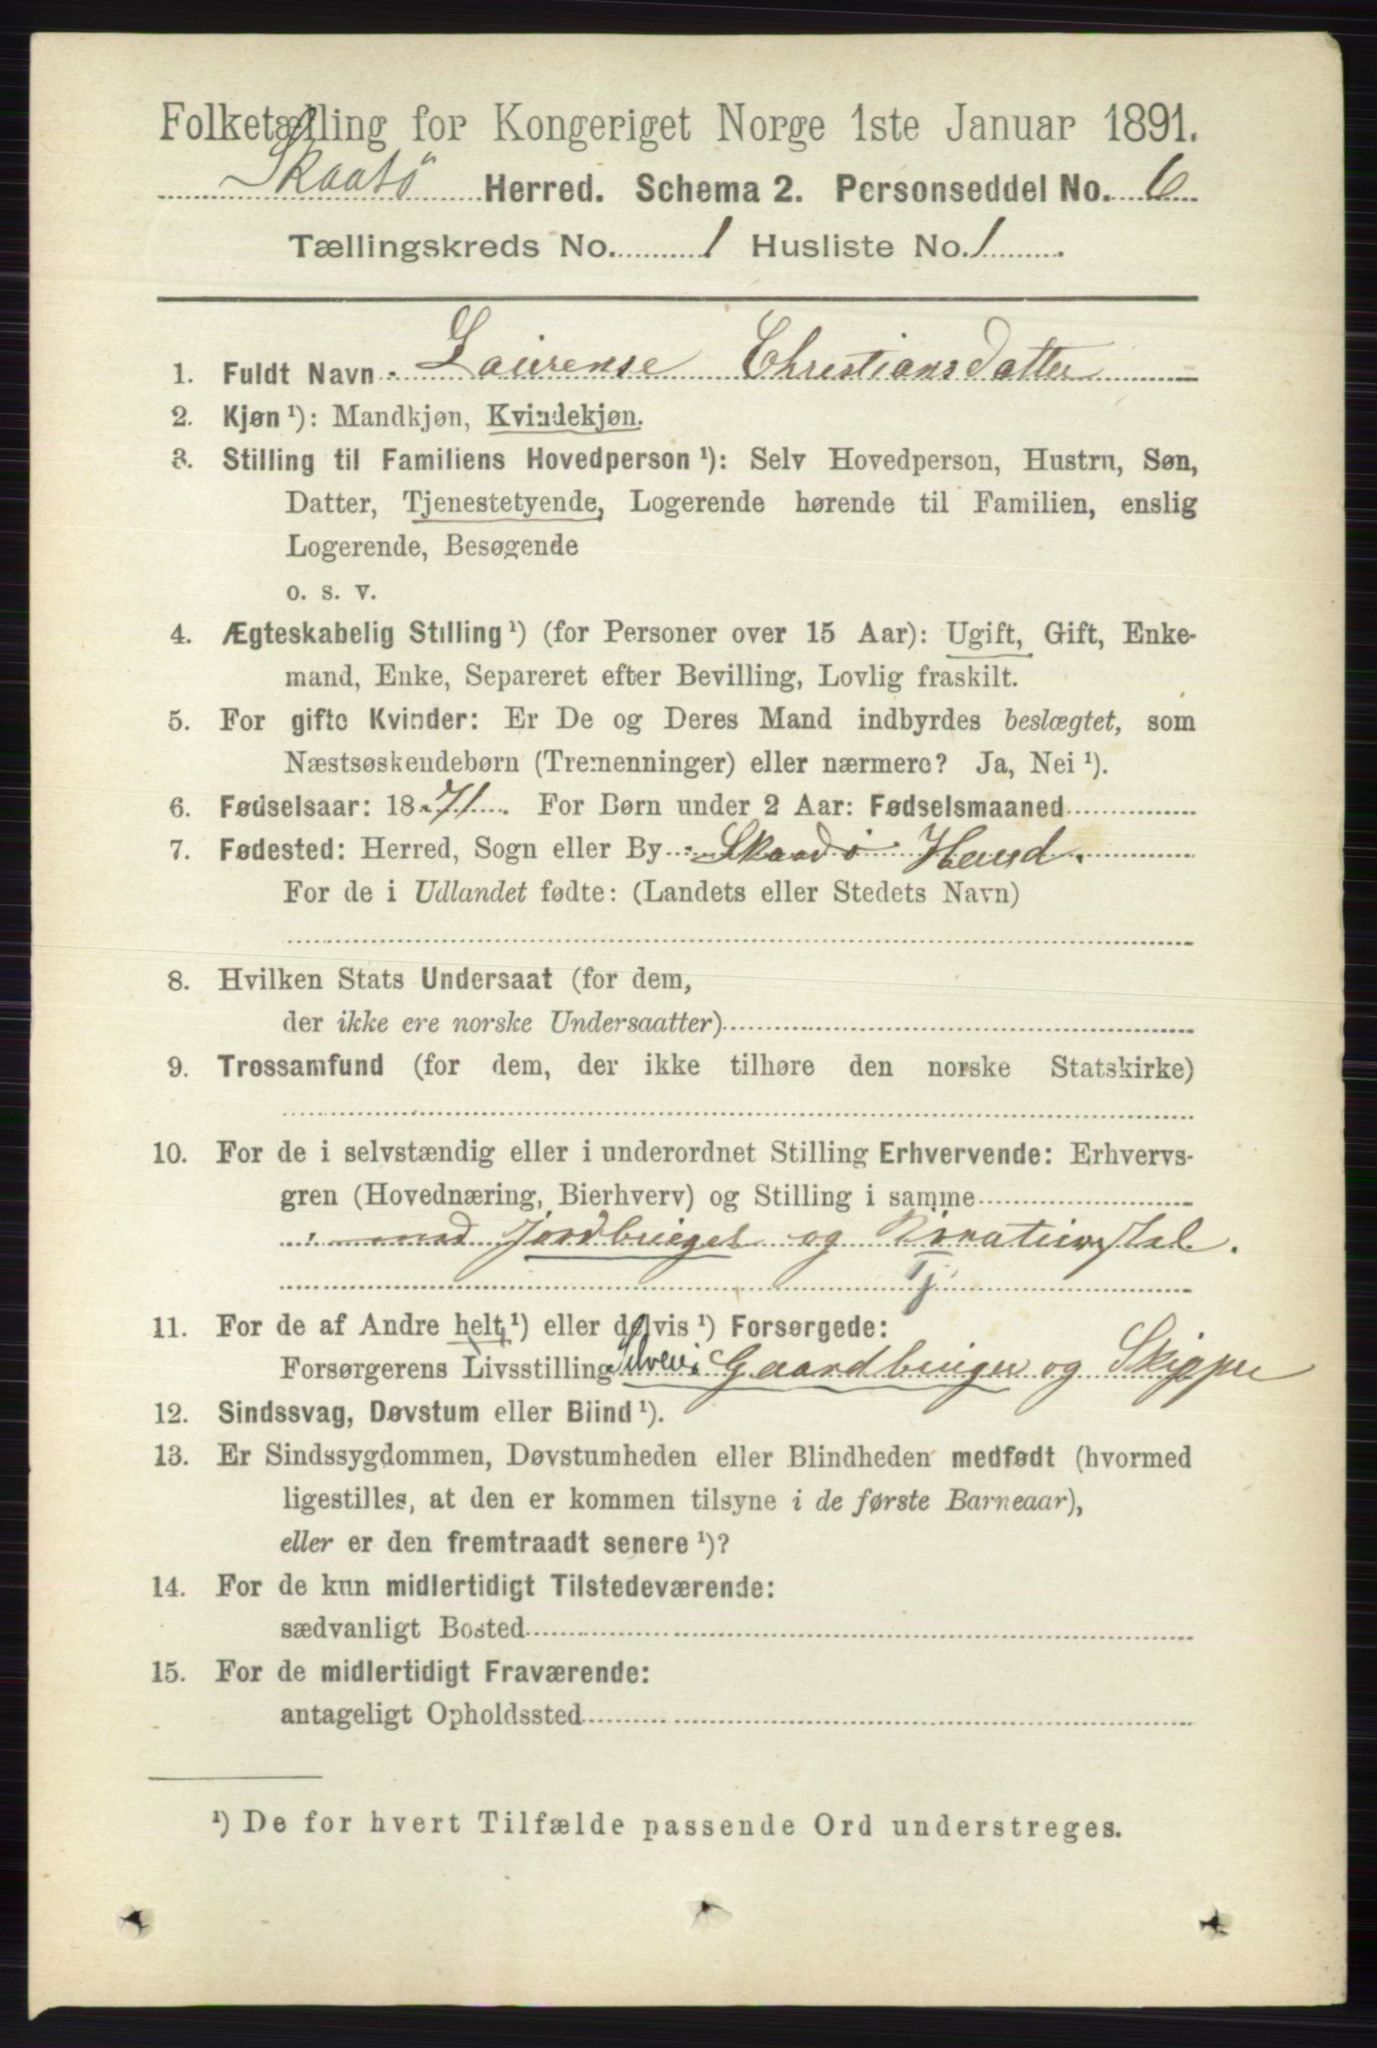 Folketælling for Kongeriget Norge 1ste Januar 1891.
Skaatö Herred. Schema 2. Personseddel No. 6
Tællingskreds No. 1 Husliste No. 1
1. Fuldt Navn Laurense Christiansdatter
2. Kjøn ¹): Mandkjøn, Kvindekjøn.
3. Stilling til Familiens Hovedperson ¹): Selv Hovedperson, Hustru, Søn,
Datter, Tjenestetyende, Logerende hørende til Familien, enslig
Logerende, Besøgende
o. s. v.
4. Ægteskabelig Stilling ¹) (for Personer over 15 Aar): Ugift, Gift, Enke-
mand, Enke, Separeret efter Bevilling, Lovlig fraskilt.
5. For gifte Kvinder: Er De og Deres Mand indbyrdes beslægtet, som
Næstsøskendebørn (Tremenninger) eller nærmere? Ja, Nei ¹).
6. Fødselsaar: 1871. For Børn under 2 Aar: Fødselsmaaned
7. Fødested: Herred, Sogn eller By Skaadø
For de i Udlandet fødte: (Landets eller Stedets Navn)
8. Hvilken Stats Undersaat (for dem,
der ikke ere norske Undersaatter)
9. Trossamfund (for dem, der ikke tilhøre den norske Statskirke)
10. For de i selvstændig eller i underordnet Stilling Erhvervende: Erhvervs-
gren (Hovednæring, Bierhverv) og Stilling i samme
med og
Tj
11. For de af Andre helt ¹) eller delvis ¹) Forsørgede:
Forsørgerens Livsstilling Gaardbruger og Skipper
12. Sindssvag, Døvstum eller Blind ¹).
13. Er Sindssygdommen, Døvstumheden eller Blindheden medfødt (hvormed
ligestilles, at den er kommen tilsyne i de første Barneaar),
eller er den fremtraadt senere ¹)?
14. For de kun midlertidigt Tilstedeværende:
sædvanligt Bosted
15. For de midlertidigt Fraværende:
antageligt Opholdssted
¹) De for hvert Tilfælde passende Ord understreges.